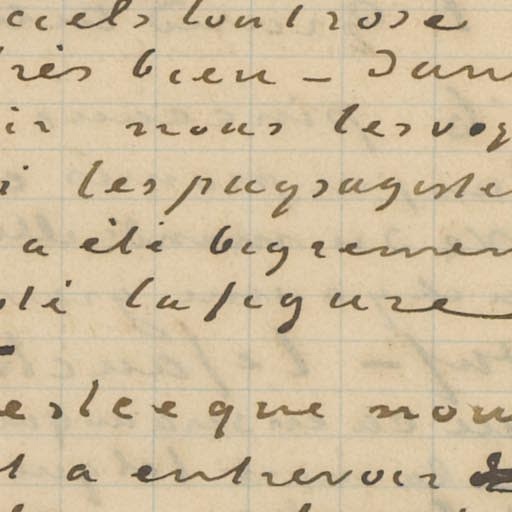 ciels tout rose
très bien – Dans
ir nous les voy
i les paysagiste
a été bigremen
té la figure
estce que nou
t a entrevoir